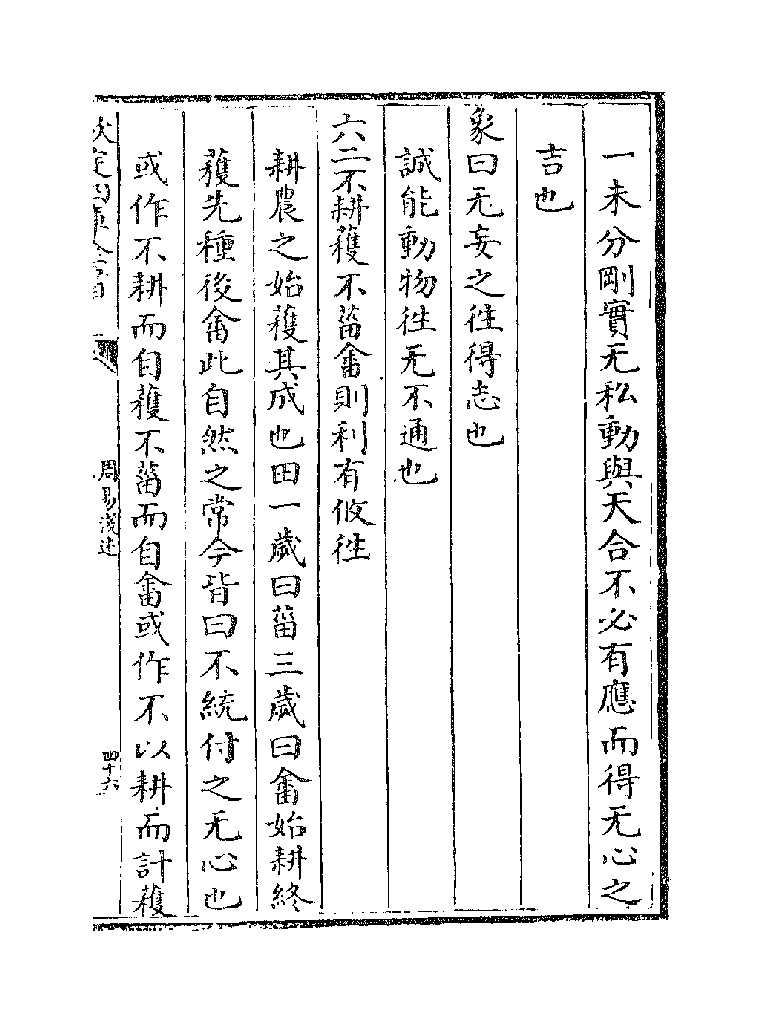 一未分剛實无私動與天合不必有應而得无心之
吉也
象曰无妄之往得志也
誠能動物往无不通也
六二不耕穫不菑畬則利有攸往
耕農之始穫其成也田一歲曰菑三歲曰畬始耕終
穫先種後畬此自然之常今皆曰不統付之无心也
或作不耕而自穫不菑而自畬或作不以耕而計穫
周易淺述
四十六